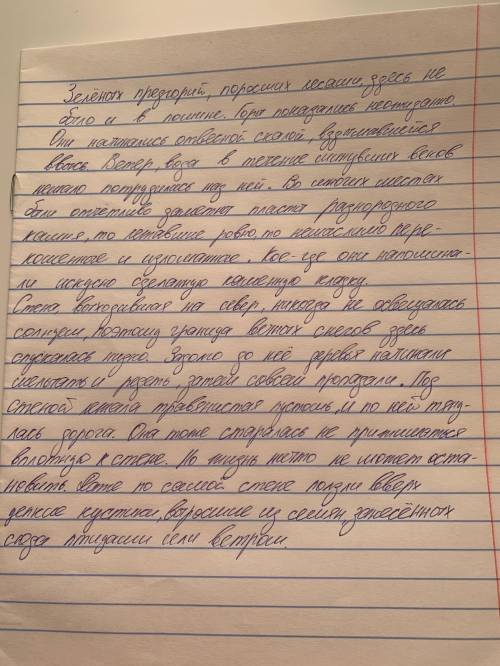 Зелёных предгорий, поросших лесами, здесь не
было и в помине. Горы показались неожиданно.
Они начинались отвесной скалой, вздымавшейся
ввысь. Ветер, вода в течение минувших веков
немало потрудились над ней. Во многих местах
были отчётливо заметны пласты разнородного
камня, то лежавшие ровно, то немыслимо пере-
кошенные и изломанные. Кое-где они напомина-
ли искусно сделанную каменную кладку.
Стена, выходившая на север, никогда не освещалась
солнцем, поэтому граница вечных снегов здесь
опускалась низко. Задолго до неё деревья начинали
мельчать и редеть, затем совсем пропадали. Под
стеной лежала травянистая пустошь, и по ней тяну-
лась дорога. Она тоже старалась не прижиматься
вплотную к стене. Но жизнь ничто не может оста-
новить. Даже по самой стене ползли вверх
цепкие кустики, выросшие из семян, занесённых
сюда птицами или ветром.